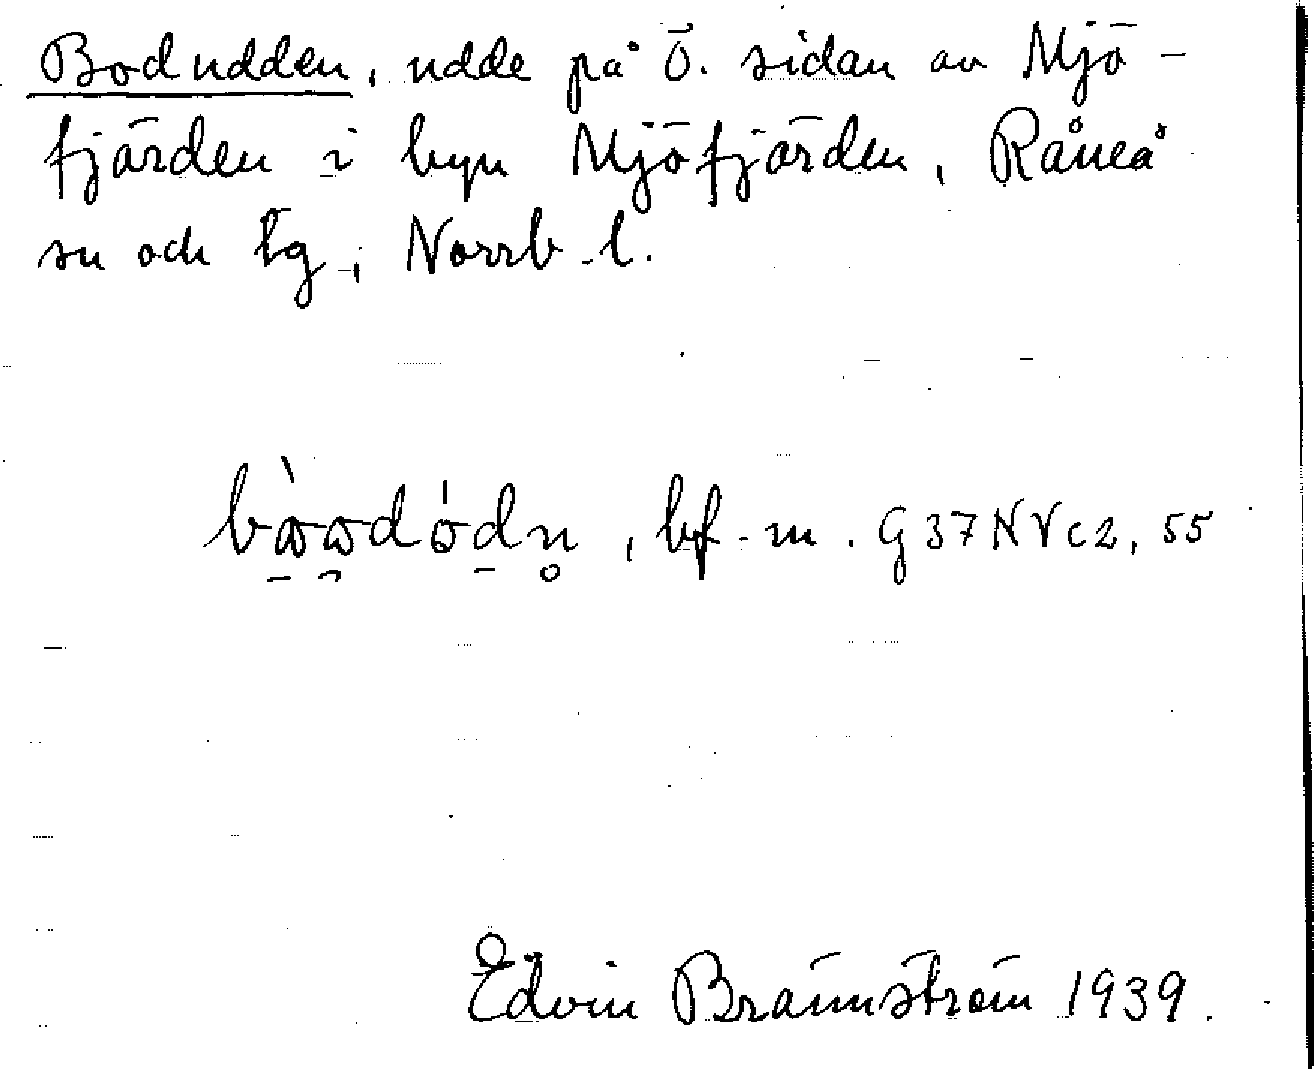 Bodudden, udde på ö. sidan av Mjö-
fjärden i byn Mjöfjärden, Råneå
sn och tg, Norrb. l.
bf. m. G37NVc2, 55
Edvin Brännström 1939.